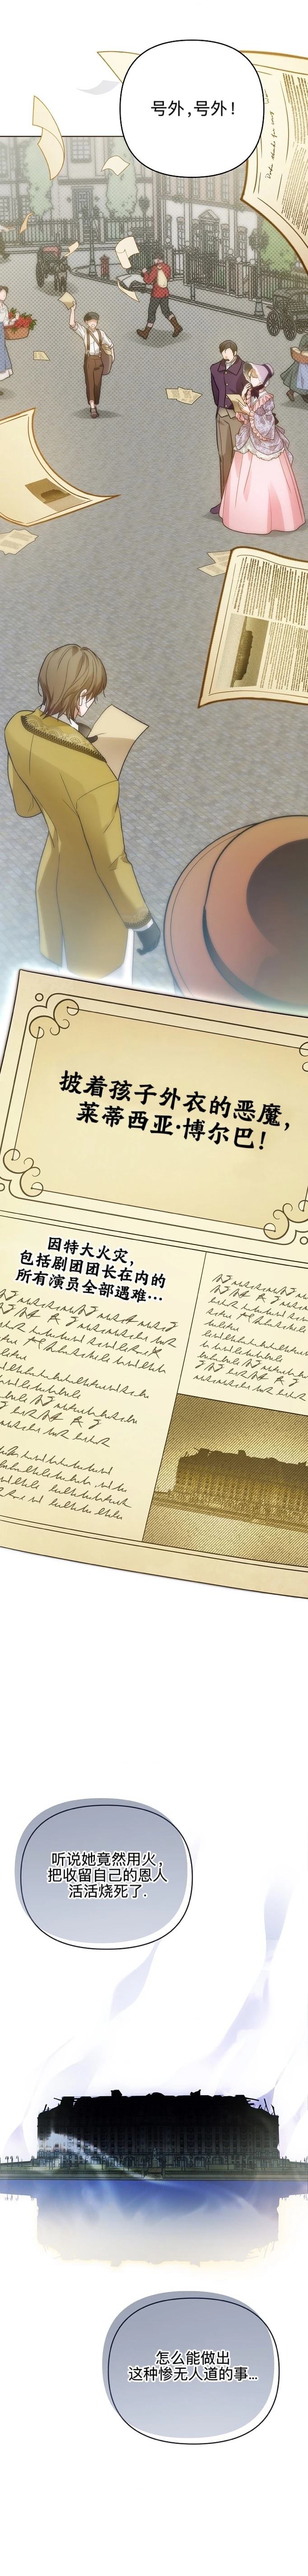 号外，号外！
披着孩子外衣的恶魔，
莱蒂西亚·博尔巴！
因特大火灾，
包括剧团团长在内的
所有演员全部遇难…
听说她竟然用火，
把收留自己的恩人
活活烧死了.
怎么能做出
这种惨无人道的事...